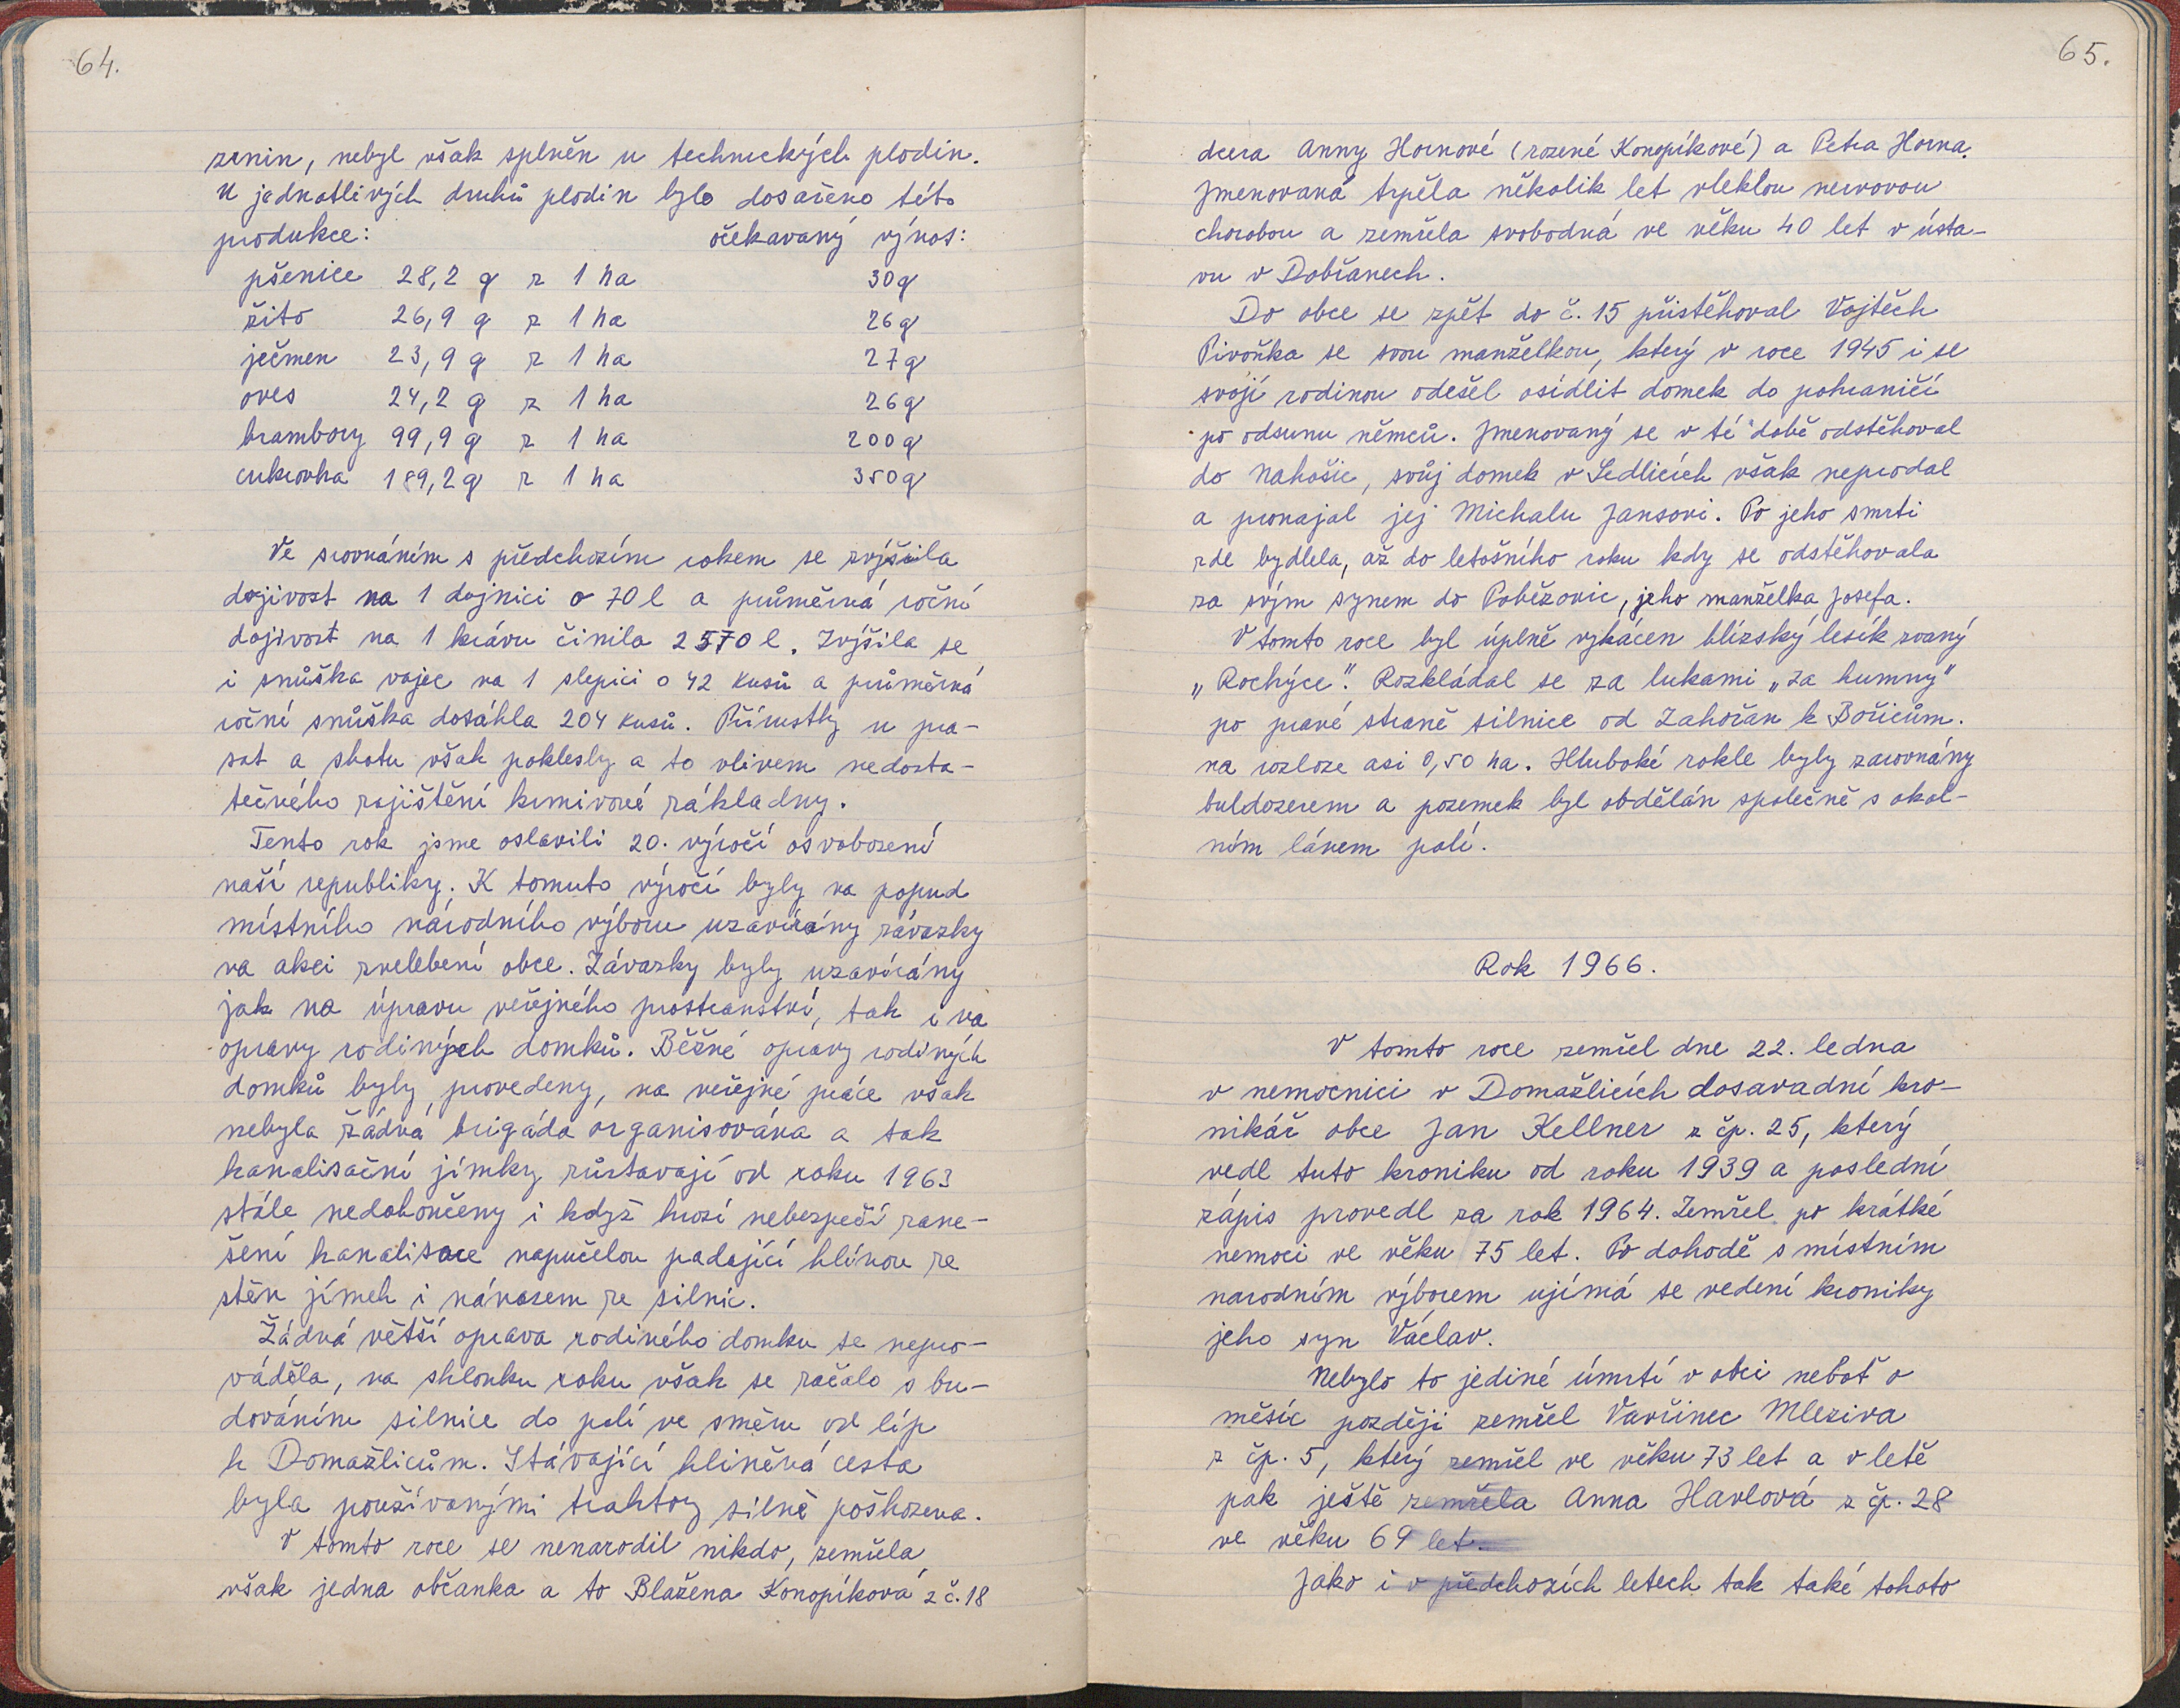 64.
zrnin, nebyl však splněn u technických plodin.
U jednotlivých druhů plodin bylo dosaženo této
produkce: očekavaný výnos:
pšenice 28,2 q z 1 ha 30q
žito 26,9 q z 1 ha 26q
ječmen 23,9 q z 1 ha 27q
oves 24,2 q z 1 ha 26q
brambory 99,9 q z 1 ha 200q
cukrovka 189,2q z 1 ha 350q
Ve srovnáním s předchozím rokem se zvýšila
dojivost na 1 dojnici o 70 l a průměrná roční
dojivost na 1 krávu činila 2570 l. Zvýšila se
i snůška vajec na 1 slepici o 42 kusů a průměrná
roční snůška dosáhla 204 kusů. Přírustky u pra-
sat a skotu však poklesly a to vlivem nedosta-
tečného zajištění krmivové základny.
Tento rok jsme oslavili 20. výročí osvobození
naší republiky. K tomuto výročí byly na popud
místního národního výboru uzavírány závazky
na akci zvelebení obce. Závazky byly uzavírány
jak na úpravu veřejného prostranství, tak i na
opravy rodiných domků. Běžné opravy rodiných
domků byly provedeny, na veřejné práce však
nebyla žádná brigáda organisována a tak
kanalisační jímky zůstavají od roku 1963
stále nedokončeny i když hrozí nebezpečí zane-
šení kanalisace napučelou padající hlínou ze
stěn jímek i nánosem ze silnic.
Žádná větší oprava rodiného domku se nepro-
váděla, na sklonku roku však se začalo s bu-
dováním silnice do polí ve směru od líp
k Domažlicům. Stávající hliněná cesta
byla používanými traktory silně poškozena.
V tomto roce se nenarodil nikdo, zemřela
však jedna občanka a to Blažena Konopíková z č. 18
65.
dcera Anny Hornové (rozené Konopíkové) a Petra Horna.
Jmenovaná trpěla několik let vleklou nervovou
chorobou a zemřela svobodná ve věku 40 let v ústa-
vu v Dobřanech.
Do obce se zpět do č. 15 přistěhoval Vojtěch
Pivoňka se svou manželkou, který v roce 1945 i se
svojí rodinou odešel osídlit domek do pohraničí
po odsunu němců. Jmenovaný se v té době odstěhoval
do Nahošic, svůj domek v Sedlicích však neprodal
a pronajal jej Michalu Jansovi. Po jeho smrti
zde bydlela, až do letošního roku kdy se odstěhovala
za svým synem do Poběžovic, jeho manželka Josefa.
V tomto roce byl úplně vykácen blízský lesík zvaný
„Rochýce". Rozkládal se za lukami „Za humny"
po pravé straně silnice od Zahořan k Bořicům.
na rozloze asi 0,50 ha. Hluboké rokle byly zarovnány
buldozerem a pozemek byl obdělán společně s okol-
ním lánem polí.
Rok 1966.
V tomto roce zemřel dne 22. ledna
v nemocnici v Domažlicích dosavadní kro-
nikář obce Jan Kellner z čp. 25, který
vedl tuto kroniku od roku 1939 a poslední
zápis provedl za rok 1964. Zemřel po krátké
nemoci ve věku 75 let. Po dohodě s místním
narodním výborem ujímá se vedení kroniky
jeho syn Václav.
Nebylo to jediné úmrtí v obci neboť o
měsíc později zemřel Vavřinec Mleziva
z čp. 5, který zemřel ve věku 73 let a v letě
pak ještě zemřela Anna Havlová z čp. 28
ve věku 69 let.
Jako i v předchozích letech tak také tohoto